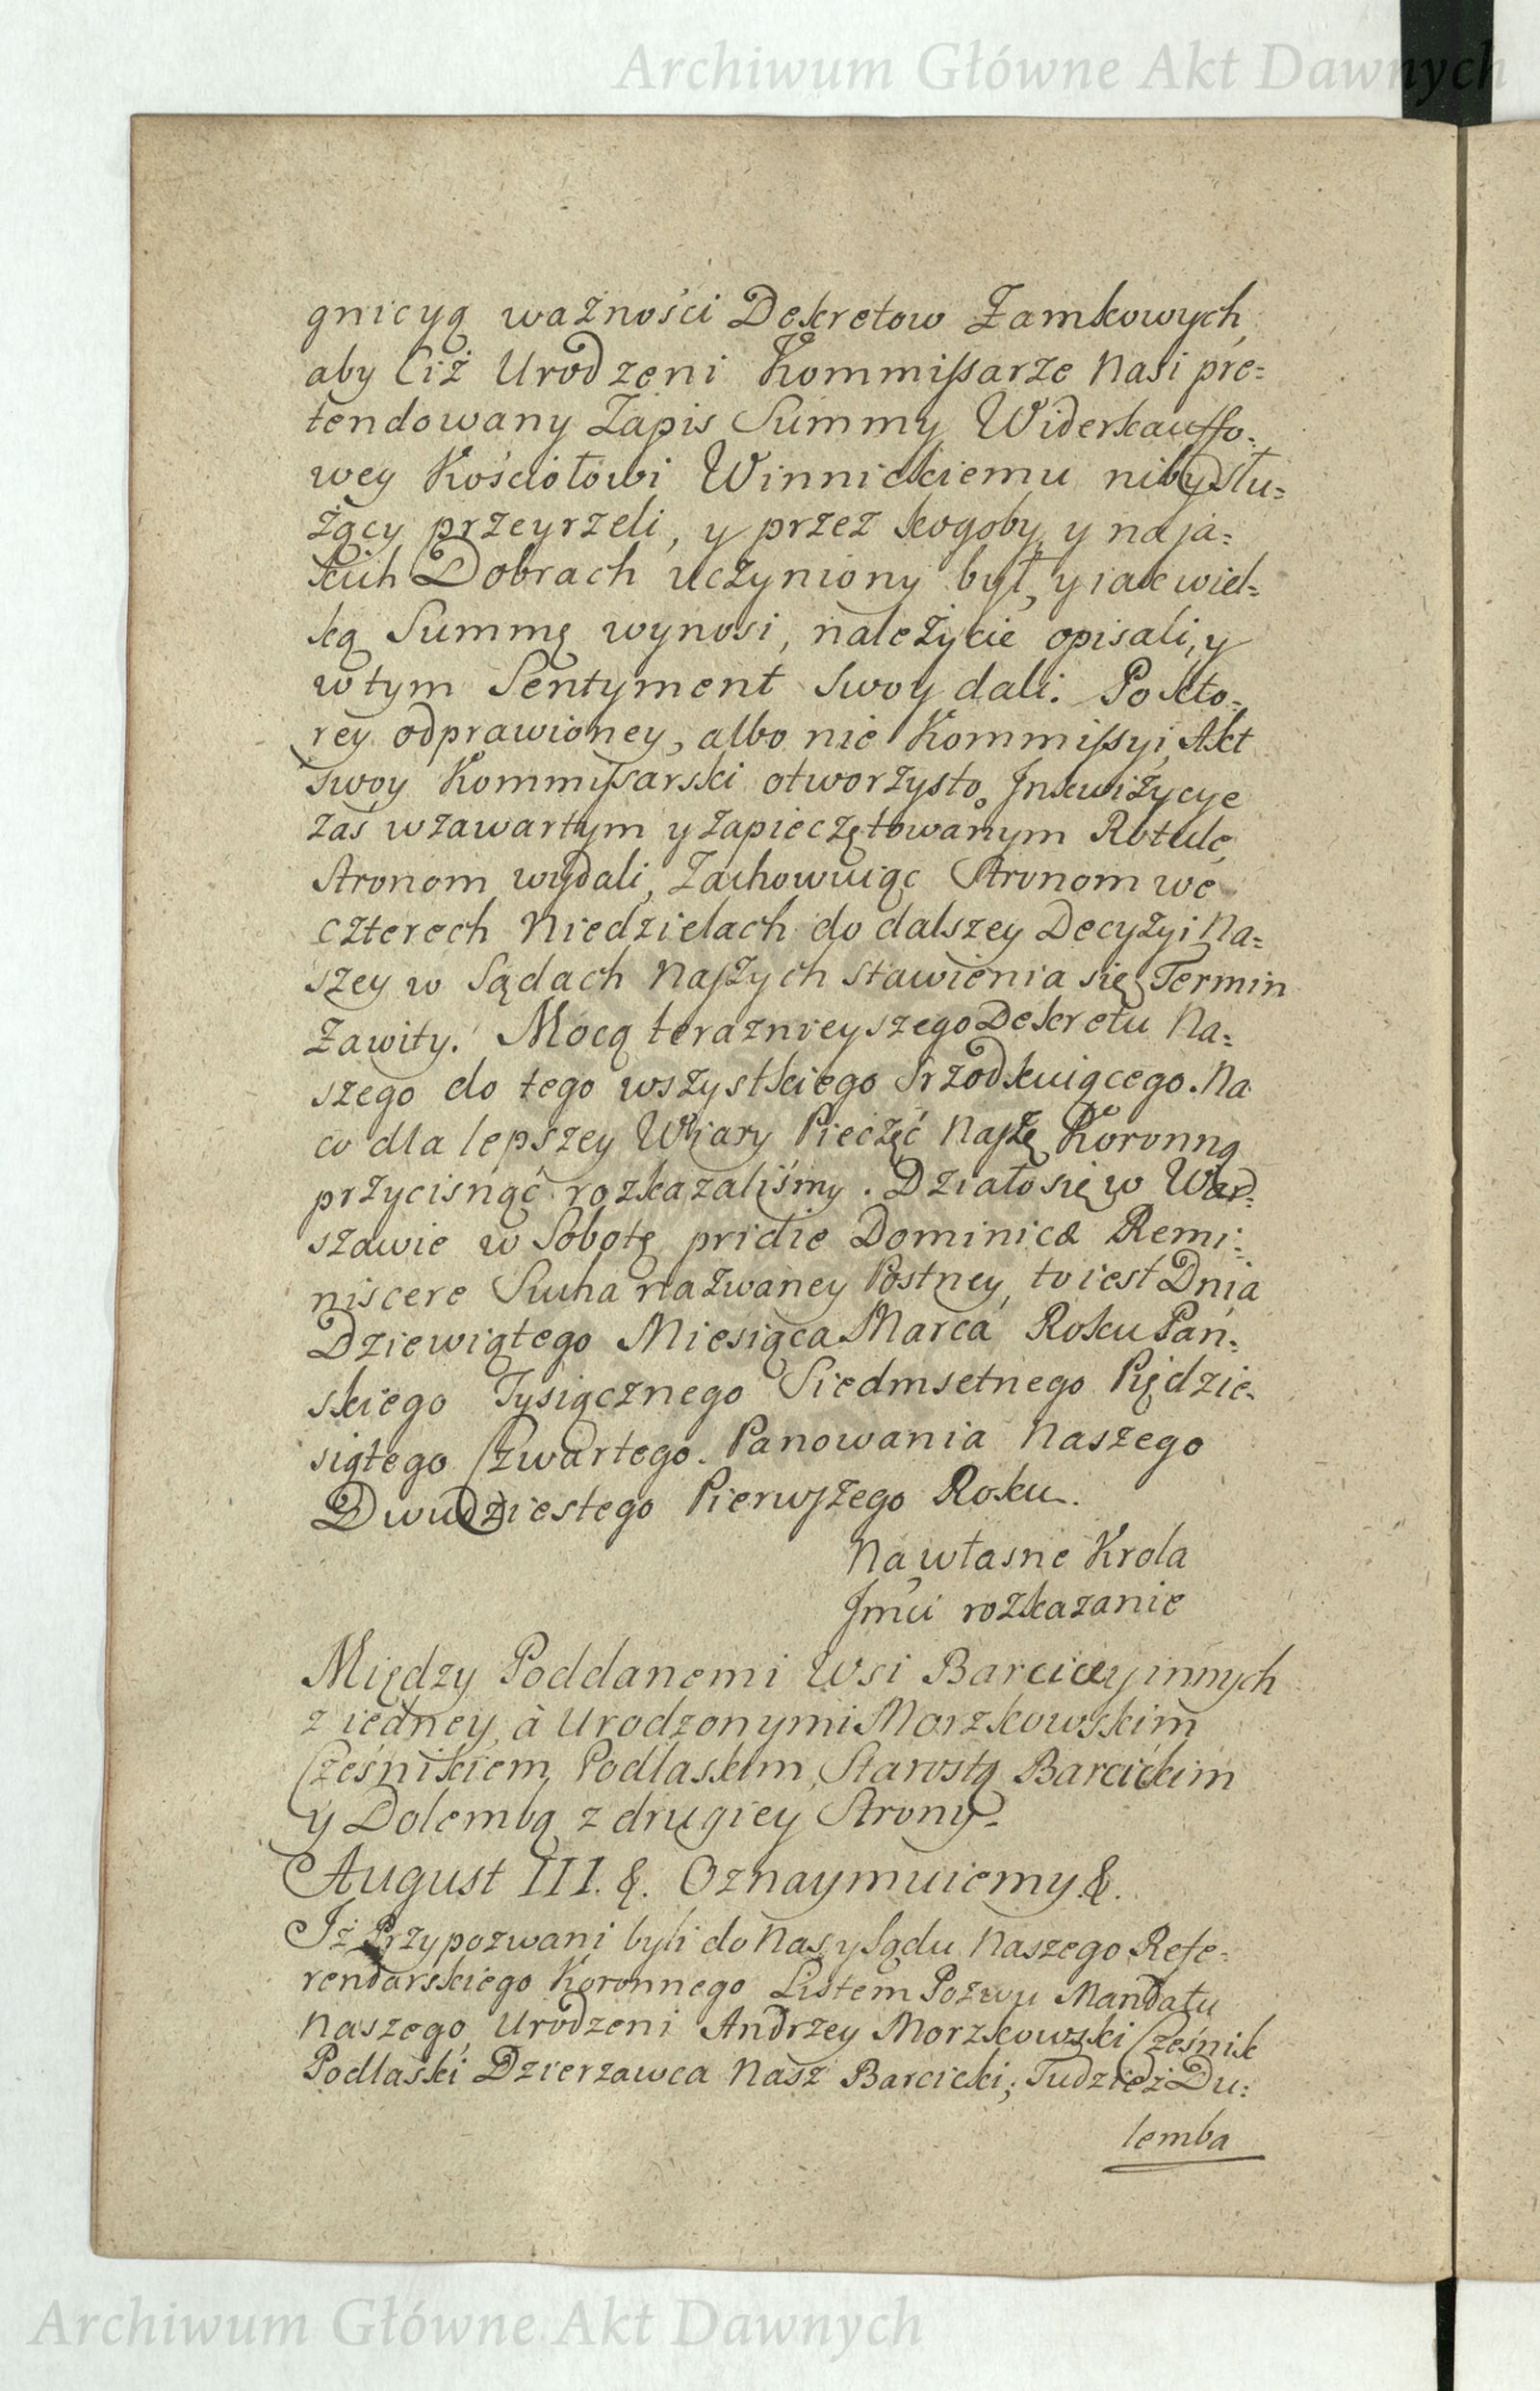 Archiwum Główne Akt Dawnych
gnicyą ważności Dekretow Zamkowych
aby Ciż Urodzeni Kommissarze Nasi pre=
tendowany Zapis Summy Widerkauffo=
wey Kościołowi Winnickiemu niby słu=
żący przeyrzeli, y przez kogoby y na ja=
kich Dobrach uczyniony był, y iak wiel=
ką Summę wynosi, należycie opisali, y
w tym Sentyment Swoy dali. Po kto=
rey odprawioney, albo nie Kommissyi, Akt
swoy Kommissarski otworzysto, Inkwizycye
zaś w zawartym y zapieczętowanym Rotule
Stronom wydali, Zachowuiąc Stronom we
czterech Niedzielach do dalszey Decyzyi Na=
szey w Sądach Naszych stawienia się Termin
Zawity. Mocą teraznieyszego Dekretu Na=
szego do tego wszystkiego srzodkuiącego. Na
co dla lepszey Wiary Pieczęć Naszę Koronną
przycisnąć rozkazaliśmy. Działo się w War=
szawie w Sobotę pridie Dominicæ Remi=
niscere Sucha nazwaney Postney, to iest Dnia
Dziewiątego Miesiąca Marca Roku Pań=
skiego Tysiącznego Siedmsetnego Pięździe=
siątego Czwartego. Panowania Naszego
Dwudziestego Pierwszego Roku.
Na własne Krola
Jmci rozkazanie
Między Poddanemi Wsi Barcice y innych
z iedney, à Urodzonymi Morzkowskim
Cześnikiem Podlaskim, Starostą Barcickim
y Dolembą z drugiey Strony.
August III. &. Oznaymuiemy &.
Iż Przypozwani byli do Nas y Sądu Naszego Refe=
rendarskiego Koronnego Listem Pozwu Mandatu
Naszego, Urodzeni Andrzey Morzkowski Cześnik
Podlaski Dzierzawca Nasz Barcicki; Tudzież Du=
lemba
Archiwum Główne Akt Dawnych